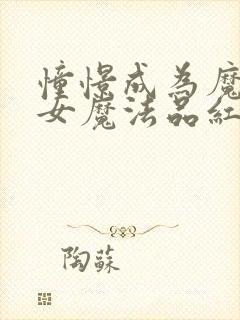 憧憬成為魔
女魔法品紅
陶蘇